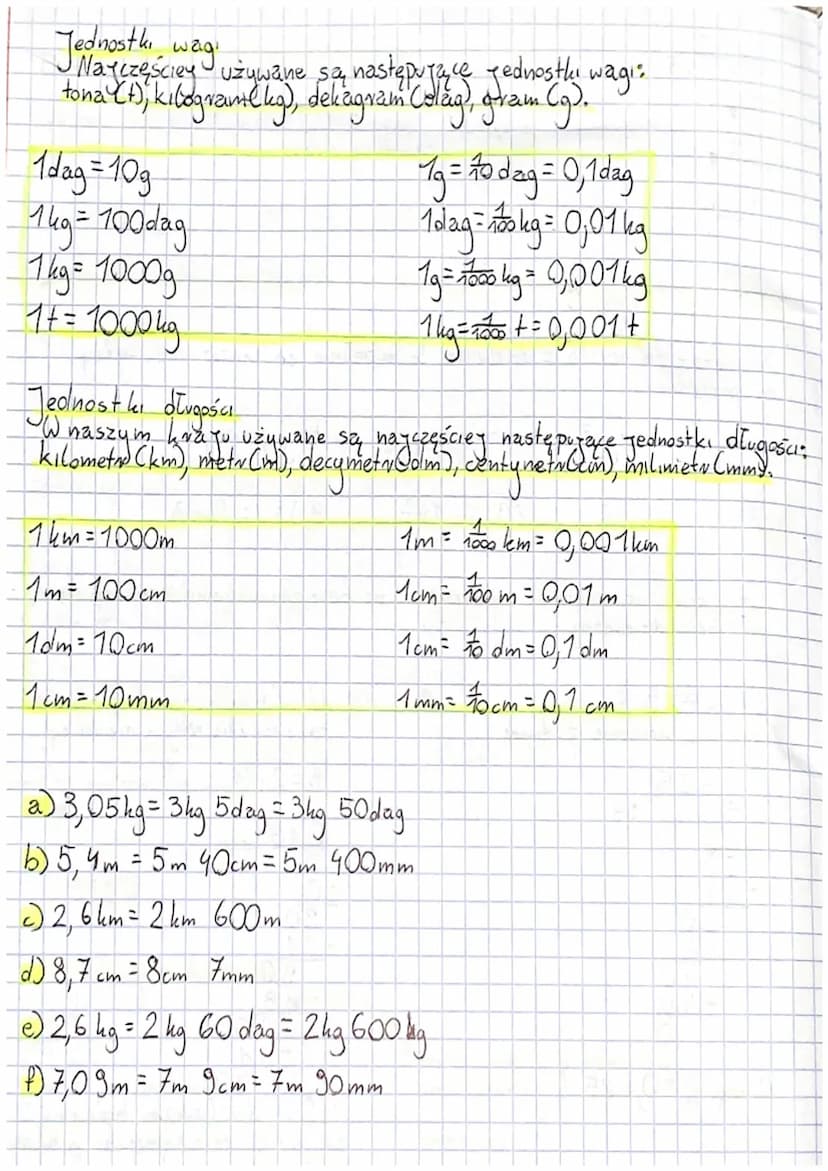 Jednostki wagi
Najczęściej używane są następujące jednostki wagi:
tona (t), kilogram (kg), dekagram (dag), gram (g).
1dag = 10g
1g = 1/10 dag = 0,1dag
1kg = 100dag
1dag = 1/100 kg = 0,01kg
1kg = 1000g
1g = 1/1000 kg = 0,001kg
1t = 1000kg
1kg = 1/1000 t = 0,001t
Jednostki długości
W naszym kraju używane są najczęściej następujące jednostki długości:
kilometr (km), metr (m), decymetr (dm), centymetr (cm), milimetr (mm).
1km = 1000m
1m = 1/1000 km = 0,001km
1m = 100cm
1cm = 1/100 m = 0,01m
1dm = 10cm
1cm = 1/10 dm = 0,1dm
1cm = 10mm
1mm = 1/10 cm = 0,1cm
a) 3,05kg = 3kg 5dag = 3kg 50dag
b) 5,4m = 5m 40cm = 5m 400mm
c) 2,6km = 2km 600m
d) 8,7cm = 8cm 7mm
e) 2,6kg = 2kg 60dag = 2kg 600kg
f) 7,09m = 7m 9cm = 7m 90mm